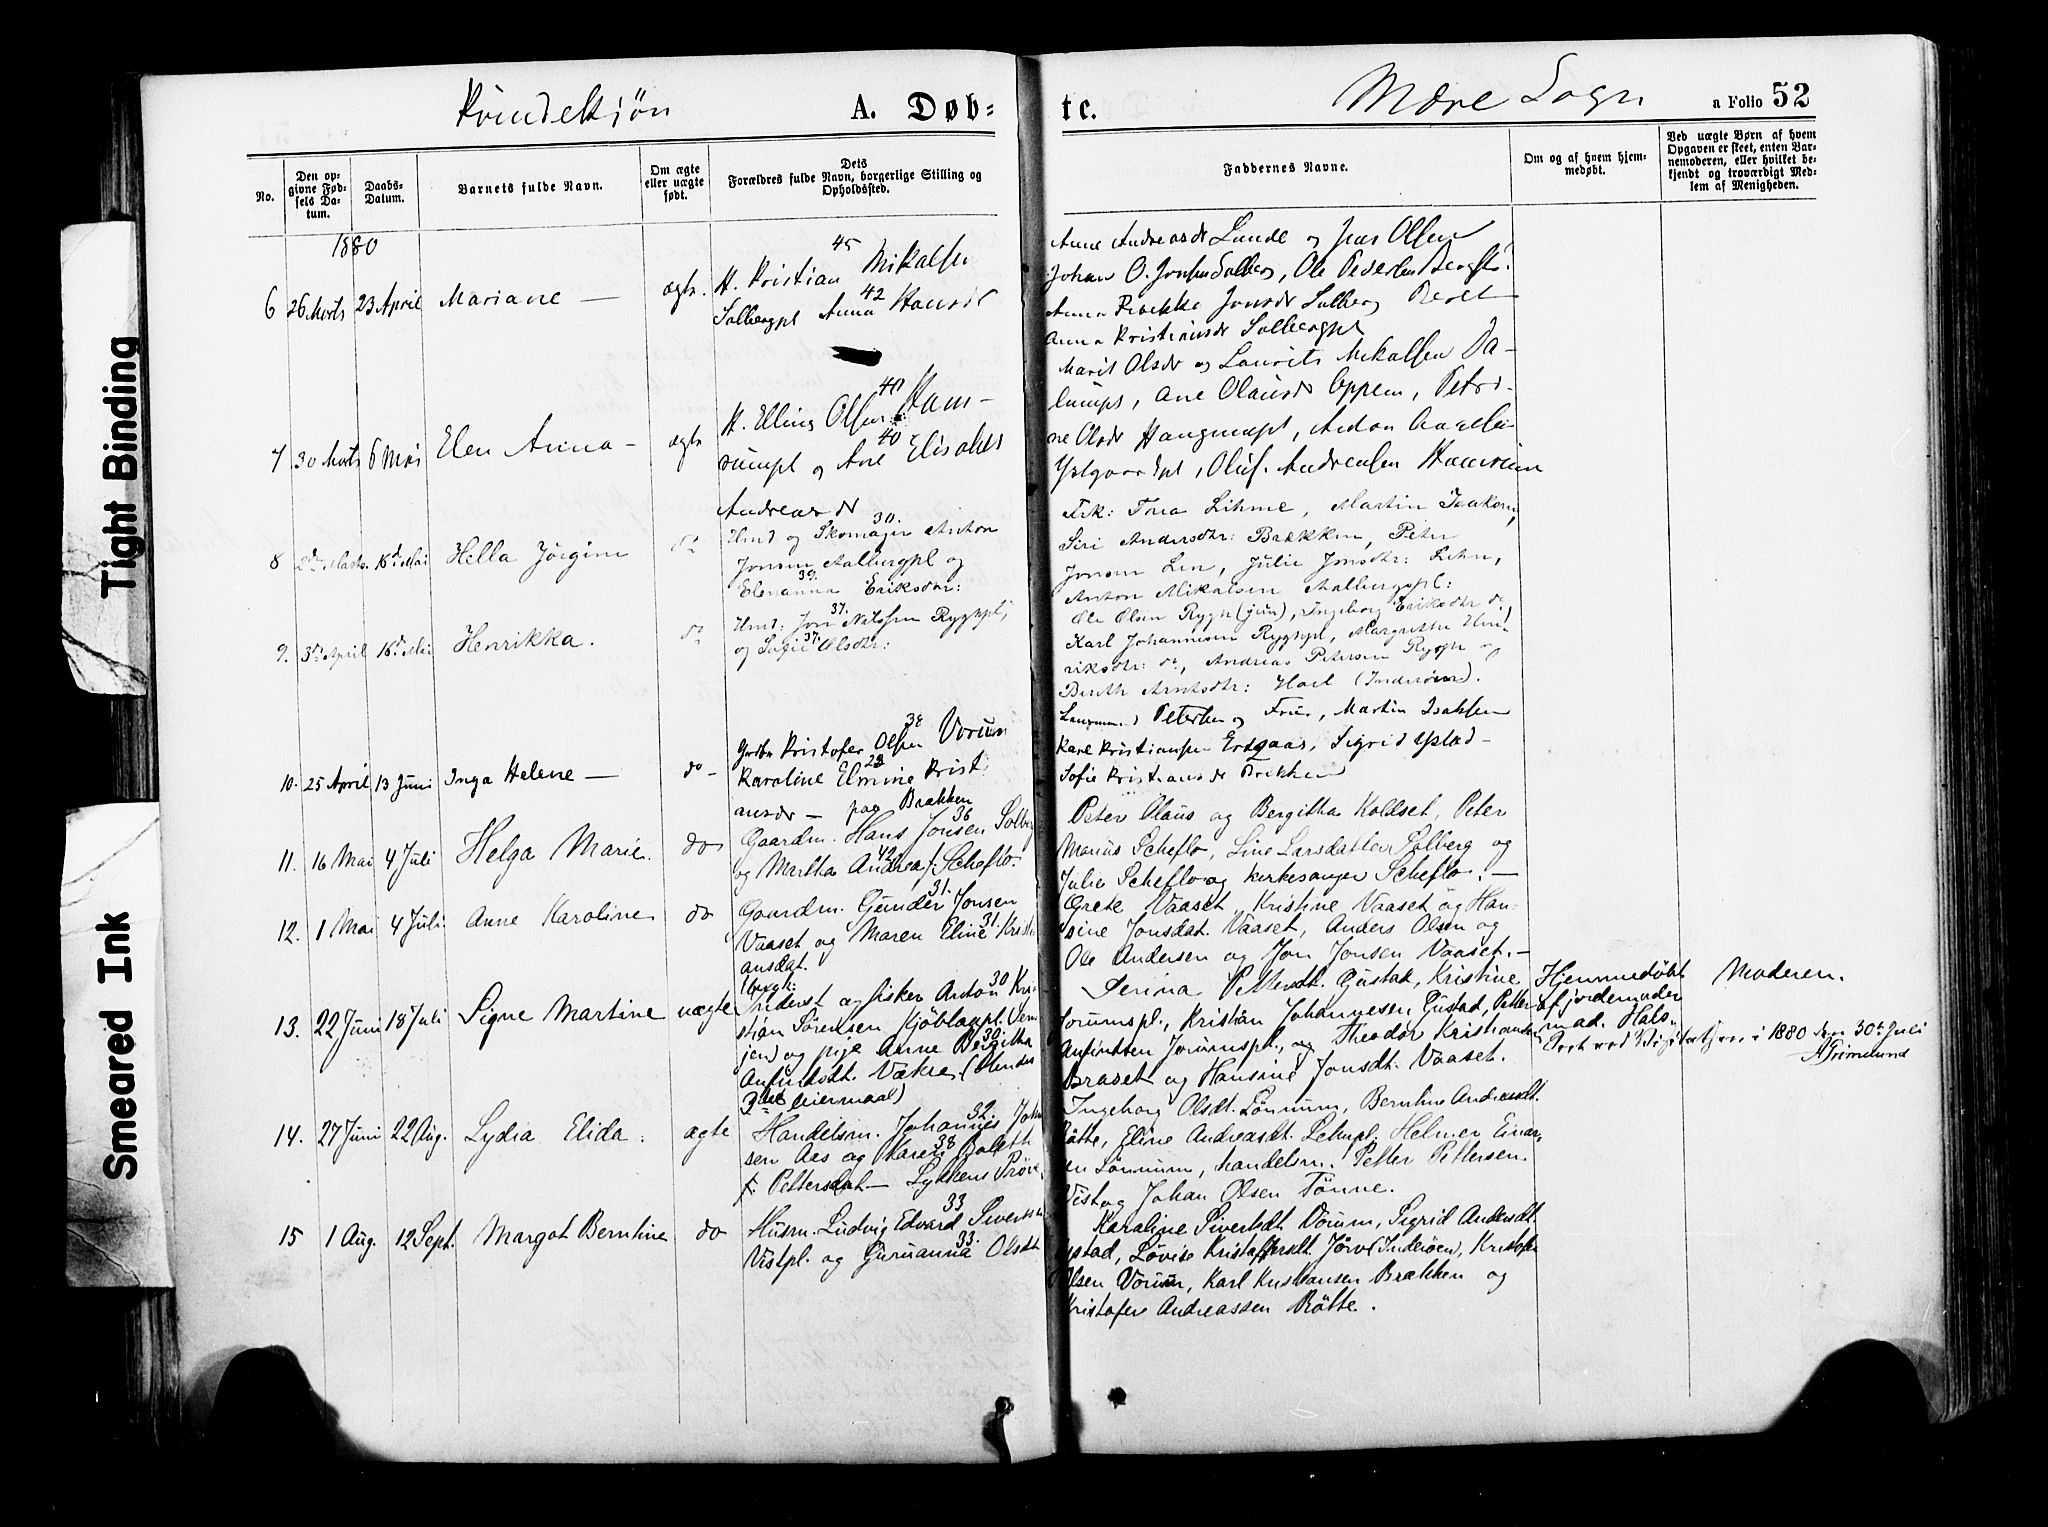 Tight Binding
Smeared Ink
Kvindekjøn
A. Døb=
tc.
Mære Sogn
a Folio 52
No.
Den op-
givne Fød-
sels Da-
tum.
Daabs-
Datum.
Barnets fulde Navn.
Om ægte
eller uægte
født.
Dets
Forældres fulde Navn, borgerlige Stilling og
Opholdssted.
Faddernes Navne.
Om og af hvem hjem-
medøbt.
Ved uægte Børn af hvem
Opgaven er skeet, enten Bar-
nemoderen, eller hvilket be-
kjendt og troværdigt Med-
lem af Menigheden.
1880
6 26 Marts 23 April Mariane — ægte.
H. Kristian 45 Mikalsen
Solbergpl Anna 42 Hansdt
Anne Andreasdt Lunde og Olsen
Johan O. Solberg, Ole Pedersen
Anna Rebekka Jonsdt Solberg
Anna Kristiansdt Solbergpl
7 30 Marts 6 Mai Elen Anna — ægte
H. Elling Olsen 40 Ham-
rumpl og Ane 40 Elisabet
Andreasdt
Marit Olsdt og Laurits Mikalsen Da-
lumpl, Ane Olausdt Oppem, Petri-
ne Olsdt Haugumpl, Anton
Ystgaardpl, Oluf Andreasen Hamrum
8 16de Mai Hilla Jørgine do
Hmd og Skomager 30. Anton
Jonsen Aalbergpl og
Elenanna 39. Eriksdtr:
Frk: Lihme, Martin Isaksen,
Siri Andersdtr: Brækken, Peter
Jonsen Lein, Julie Jonsdtr: Lein,
Anton Mikalsen Aalbergpl:
9. 3die April 16de Mai Henrikka. do
Hmd: Jon 37. Nilssen Ryggpl,
og Sofie 37. Olsdtr:
Ole Olsen Rygg (jun), Ingeborg Eriksdtr do,
Karl Johannesen Ryggpl, Margrethe Hen-
riksdtr: do, Andreas Petersen Rygg og
Berith Arntsdtr: Hoel (Inderøen).
10. 25 April 13 Juni Inga Helene — do —
Kristofer 38 Olsen Vorum
Karoline Elmine 23 Krist-
iansdr — paa Brækken
Petersen og Frue, Martin Isaksen
Karl Kristiansen Sigrid Ystad —
Sofie Kristiansdt Brækken
11. 16 Mai 4 Juli Helga Marie. do
Gaardm. Hans Jonsen 36 Solberg
og Martha Andrea 42 f: Scheflo.
Peter Olaus og Bergitha Koldset, Peter
Marius Scheflo, Line Larsdatter Solberg og
Julie Scheflo og Kirkesanger Scheflo. —
12. 1 Mai 4 Juli. Anne Karoline do
Gaardm. Gunder 31. Jonsen
Vaaset og Maren Eline 31. Kristi
ansdat.
Grete Vaaset, Kristine Vaaset og Han-
sine Jonsdat. Vaaset, Anders Olsen og
Ole Andersen og Jon Jonsen Vaaset. —
13. 22 Juni 18 Juli. Signe Martine uægte
Inderst og fisker Anton 30 Kri-
stian Sørensen Kjøblapl. Vem
jen) og pige Anne Bergitha
Anfindsdt. Vækre,
2det leiermaal)
Serina Pettersdt. Gustad, Kristine
Jorumspl., Kristian Johannesen Gustad, Petter
Anfindsen Jorumspl., og Theodor Kristiansen
Braset og Hansine Jonsdt. Vaaset.
Hjemmedøbt
af jordemoder
mad. Hals.
Moderen.
i 1880 den 30te Juli
AGrimelund
14. 27 Juni 22 Aug. Lydia Elida. ægte
Handelsm. Johannes 32. Johan-
sen Aas og Karen 38 Bolette
f: Pettersdat — Lykkens Prøve.
Ingeborg Olsdt. Lønnum, Berntine Andreasdt.
Røtte, Eline Andreasdt. Leinpl. Helmer Einar-
sen Lønnum, handelsm. Petter Pettersen.
Vist og Johan Olsen Tønne.
15 1 Aug. 12 Sept. Margot Berntine do
Husm. Ludvig Edvard 33 Sivertsen
Vistpl. og Guruanna 33. Olsdt
Karoline Sivertsdt Vorum, Sigrid Andersdt.
Ystad, Lovise Kristoffersdt. Jørv (Inderøen), Kristofer
Olsen Vorum, Karl Kristiansen Brækken og
Kristofer Andreassen Røtte.